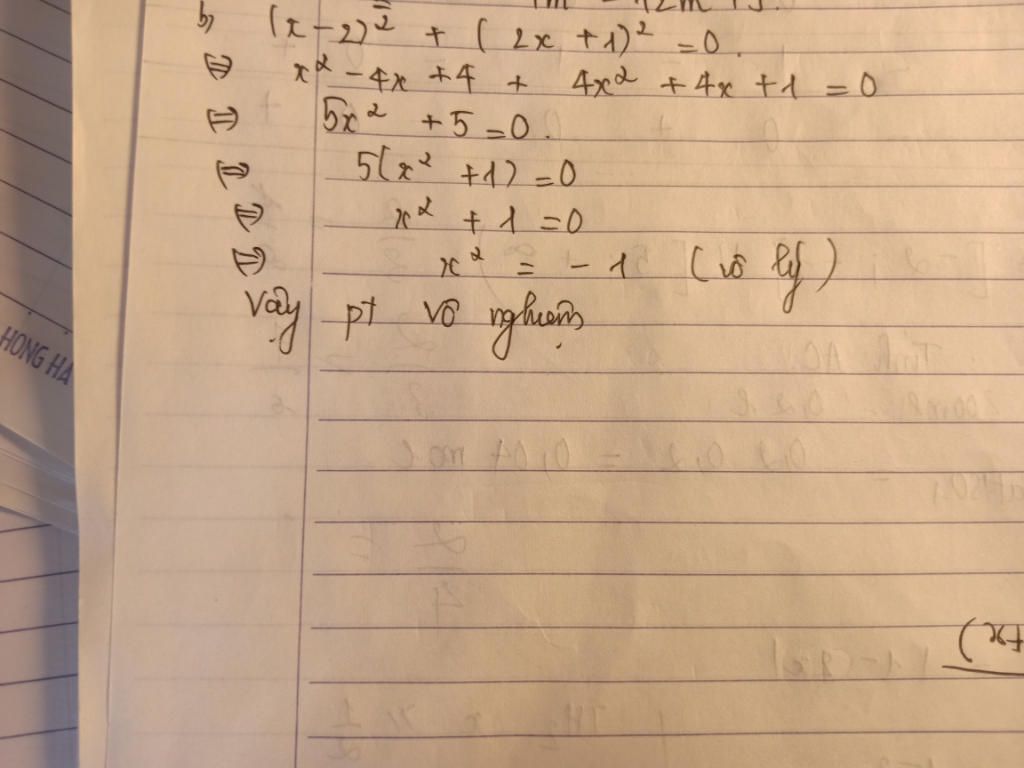 b) (x-2)² + (2x+1)² = 0.
⇔ x² - 4x + 4 + 4x² + 4x + 1 = 0
⇔ 5x² + 5 = 0.
⇔ 5(x² + 1) = 0
⇔ x² + 1 = 0
⇔ x² = -1 (vô lý)
Vậy pt vô nghiệm
HONG HA